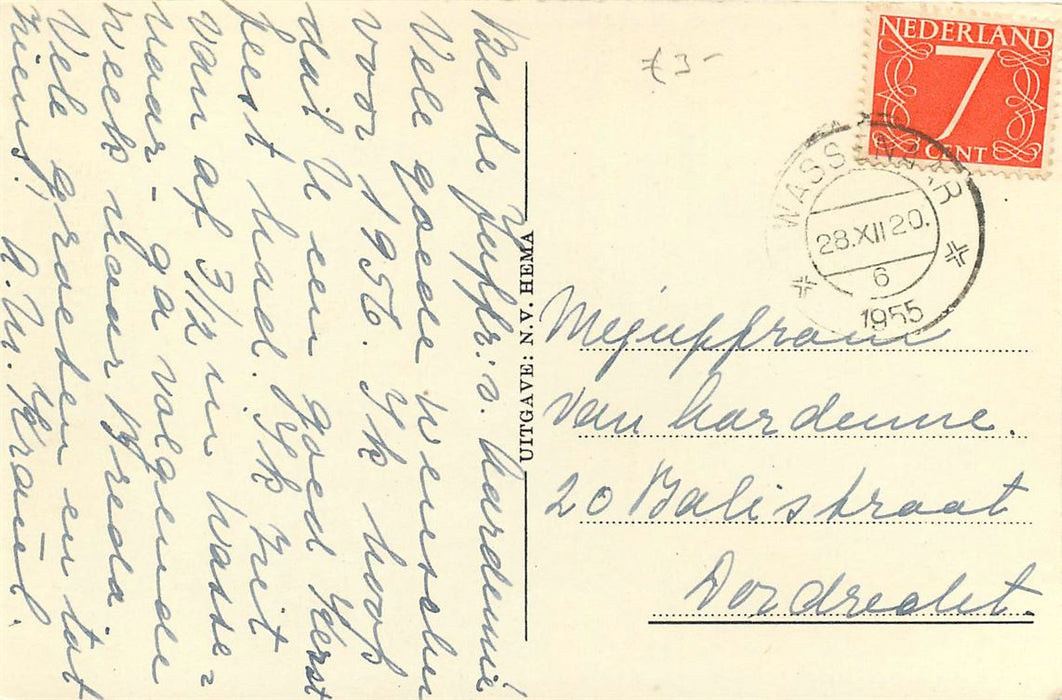 Beste Juffr: v. Hardenne
Vele goede wenschen
voor 1956. Ik hoop
dat U een goed Kerst
feest had. Ik zit
van af 3/12 in Wasse=
naar - ga volgende
week naar Breda
Vele groeten en tot
ziens! A. M. Kraul.
UITGAVE: N.V. HEMA
£ 3-
NEDERLAND
7
CENT
WASSENAAR
28.XII 20.
6
1955
Mejuffrouw
van hardenne.
20 Balistraat
Dordrecht.